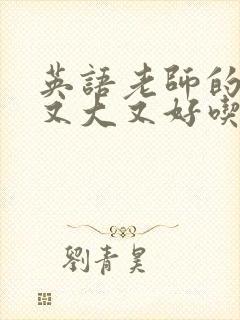 英語老師的
又大又好喫
劉青昊